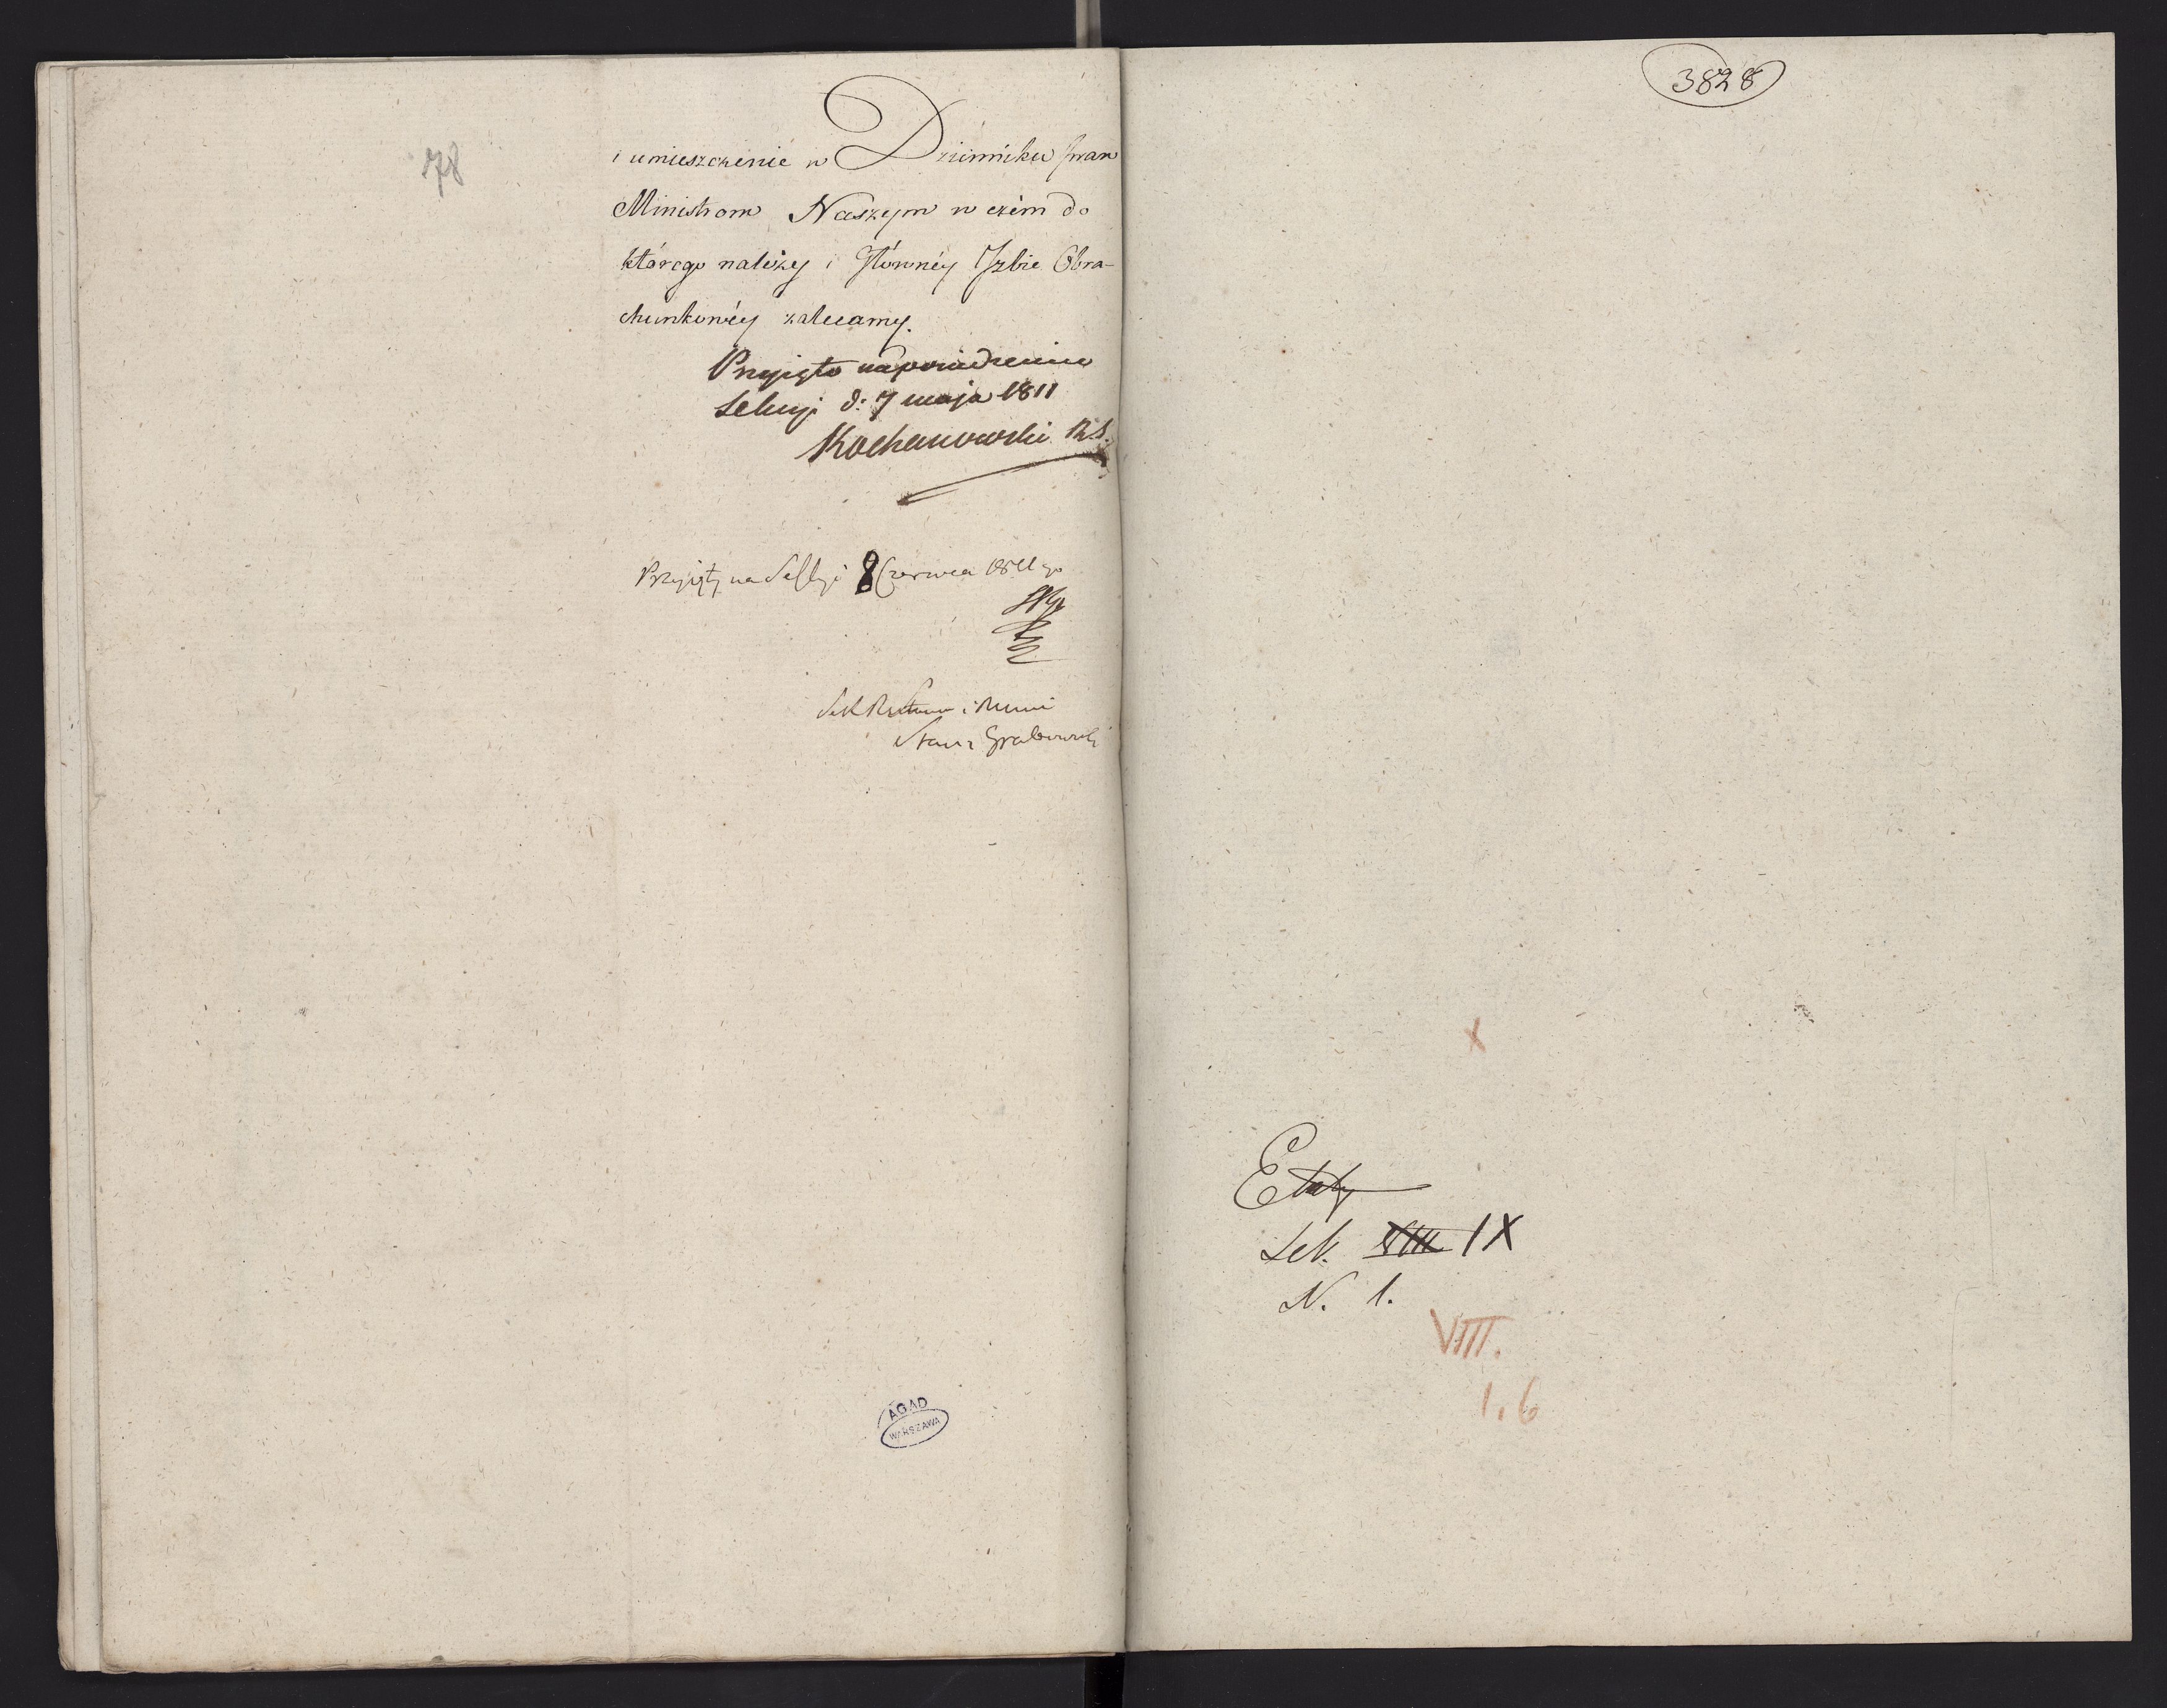 78
i umieszczenie w Dzienniku praw
Ministrom Naszym w czém do
którego należy i Głównéy Jzbie Obra-
chunkowéy zalecamy.
Przyięto na posiedzeniu
Sekcyi d: 7 maja 1811
Kochanowski R.S.
Przyięty na Sessyi 8 Czerwca 1811 go
Stanis Grabowski
AGAD
WARSZAWA
3828
X
Etaty
Sek. VIII IX
N. 1.
VIII.
1.6